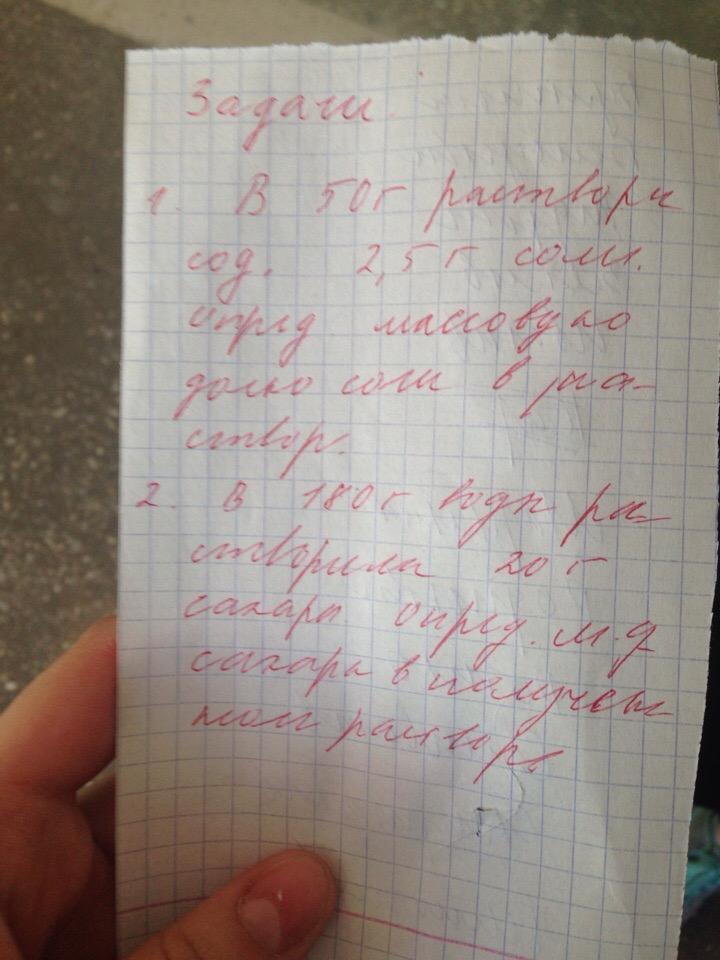 Задачи.
1. В 50г раствора
сод. 2,5г соли.
опред массовую
долю соли в ра-
створ.
2. В 180г воды ра-
створили 20г
сахара опред. м.д
сахара в получен
ном растворе